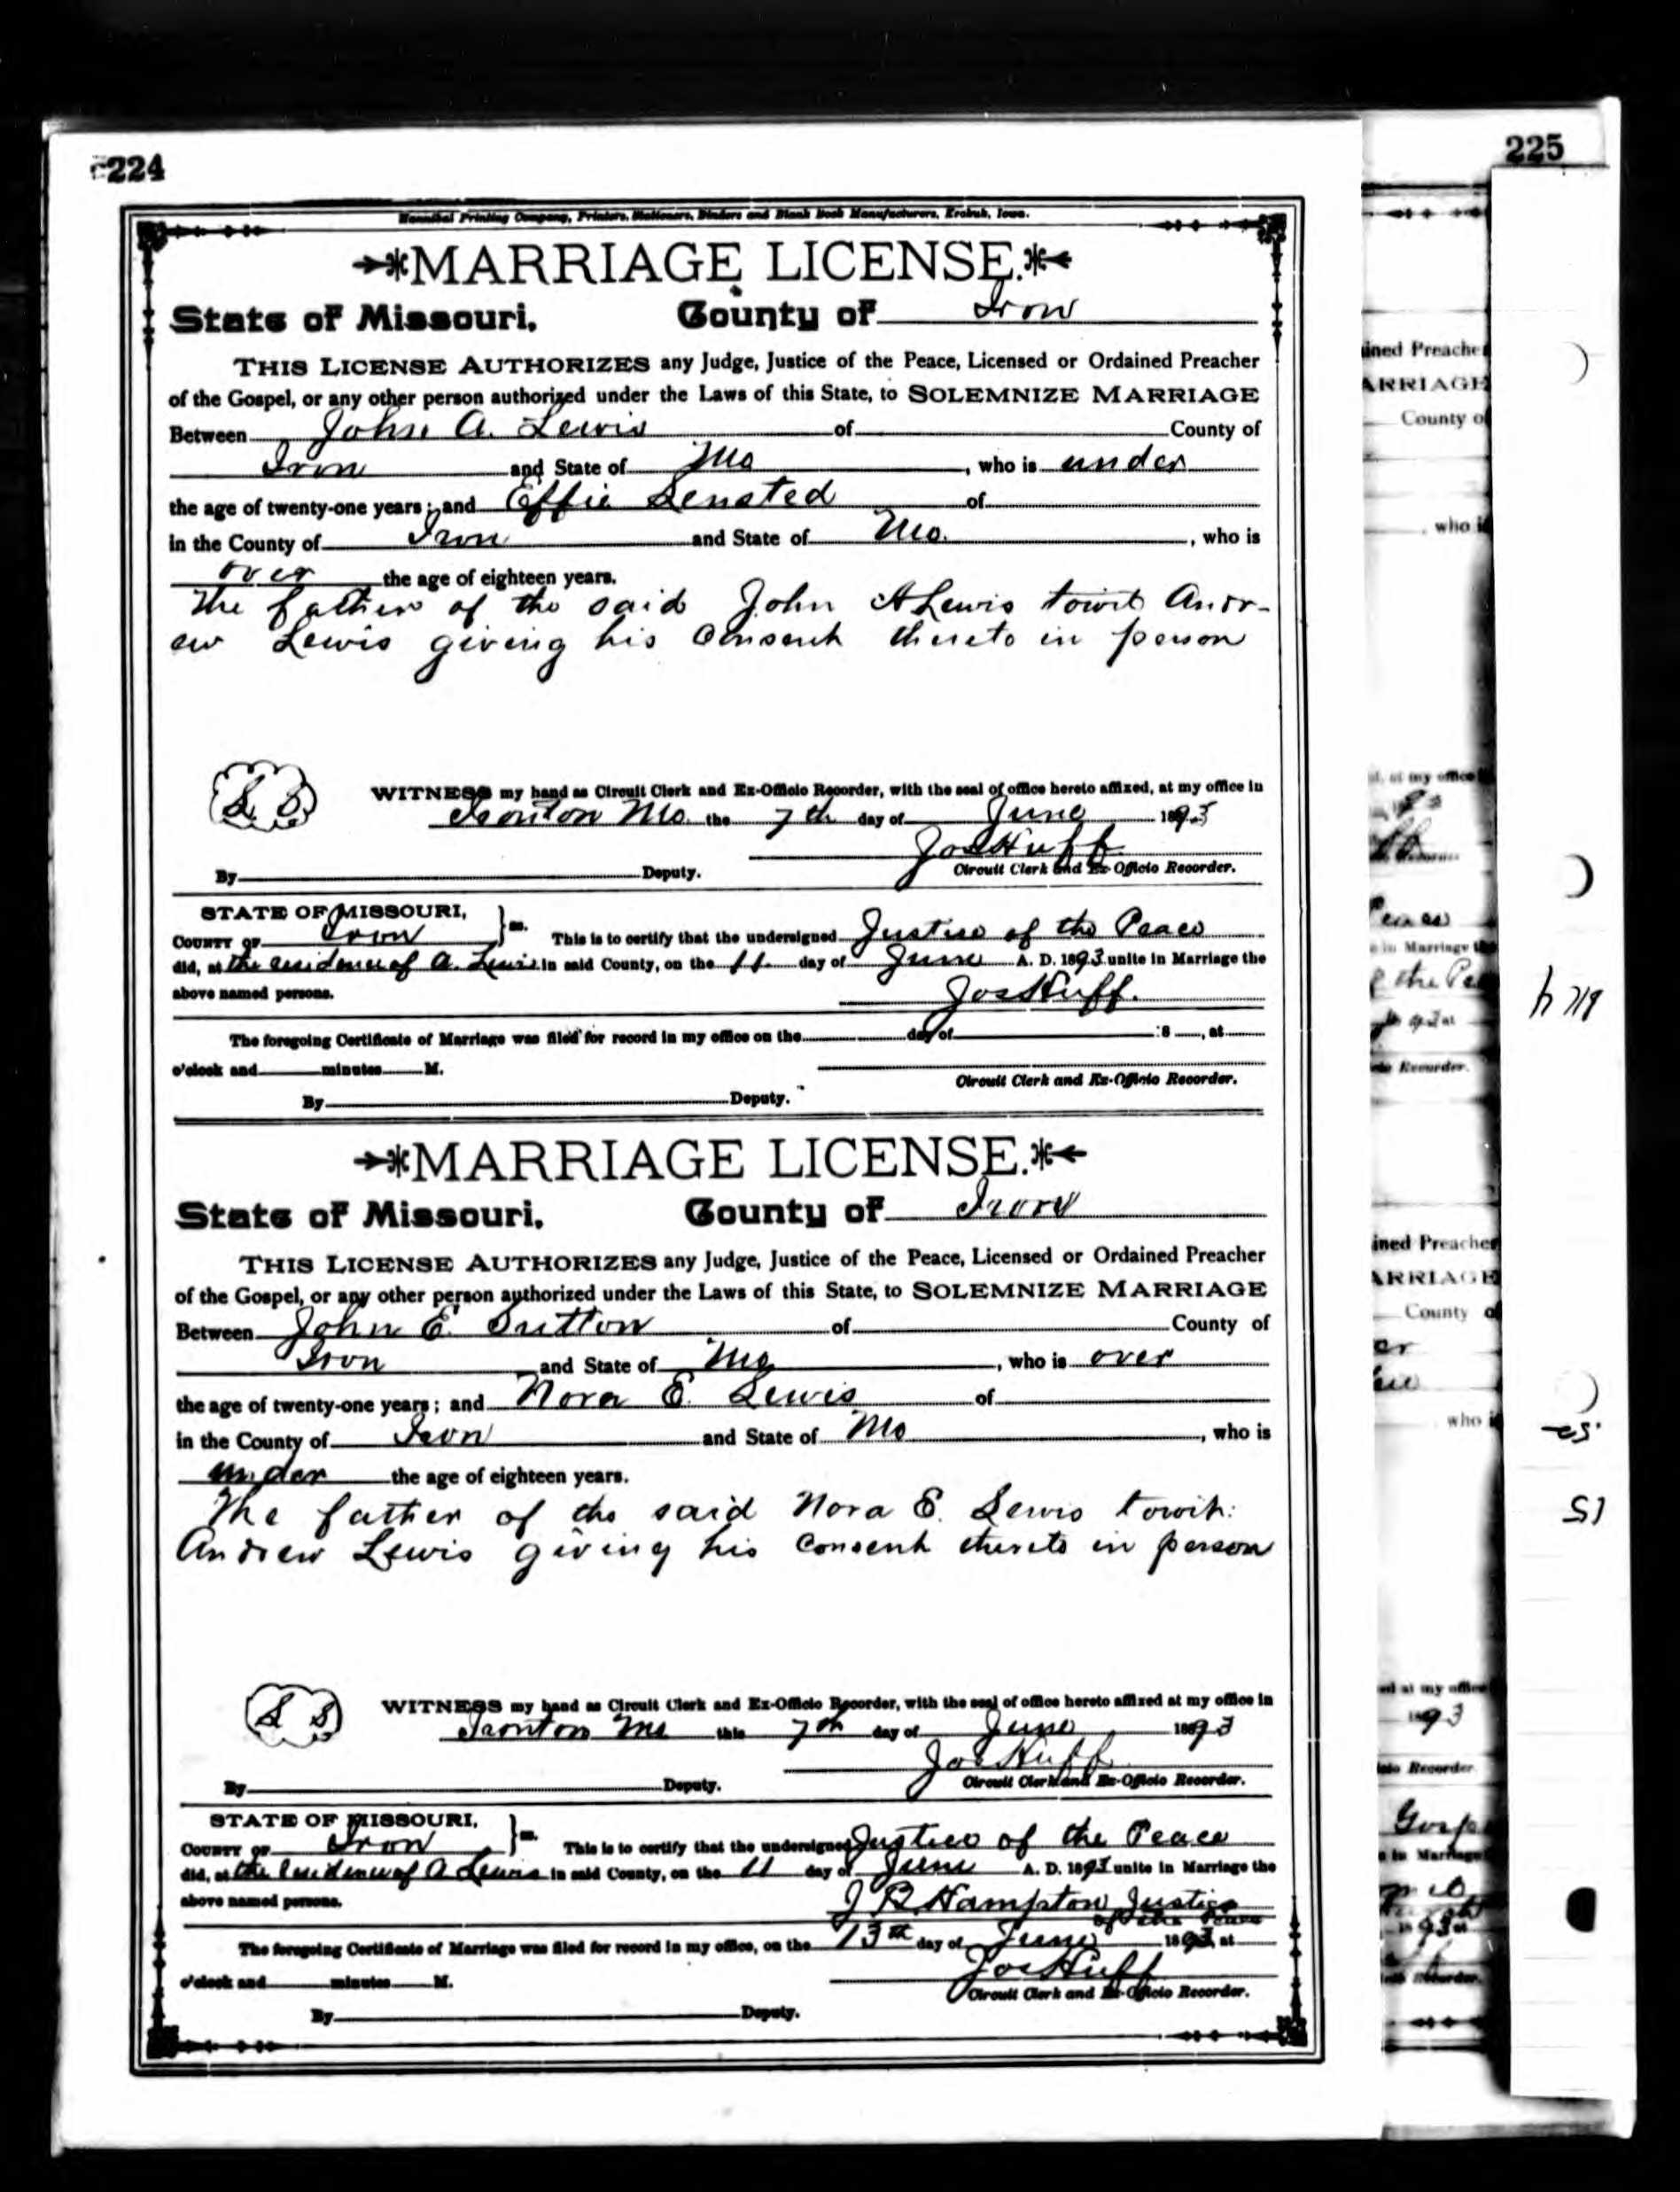 224
225
Hannibal Printing Company, Printers, Stationers, Binders and Blank Book Manufacturers, Keokuk, Iowa.
MARRIAGE LICENSE.
State of Missouri, County of Iron
THIS LICENSE AUTHORIZES any Judge, Justice of the Peace, Licensed or Ordained Preacher
of the Gospel, or any other person authorized under the Laws of this State, to SOLEMNIZE MARRIAGE
Between John A. Lewis of County of
Iron and State of Mo , who is under
the age of twenty-one years; and Effie of
in the County of Iron and State of Mo. , who is
over the age of eighteen years.
The father of the said John A Lewis towit Andr-
ew Lewis giving his Consent thereto in person
L S
WITNESS my hand as Circuit Clerk and Ex-Officio Recorder, with the seal of office hereto affixed, at my office in
Ironton Mo. the 7th day of June 1893
Jos Huff
By Deputy. Circuit Clerk and Ex-Officio Recorder.
STATE OF MISSOURI,
COUNTY OF Iron } ss. This is to certify that the undersigned Justice of the Peace
did, at the residence of A. Lewis in said County, on the 11 day of June A. D. 1893 unite in Marriage the
above named persons. Jos Huff.
The foregoing Certificate of Marriage was filed for record in my office on the day of 18 , at
o'clock and minutes M.
Circuit Clerk and Ex-Officio Recorder.
By Deputy.
MARRIAGE LICENSE.
State of Missouri, County of Iron
THIS LICENSE AUTHORIZES any Judge, Justice of the Peace, Licensed or Ordained Preacher
of the Gospel, or any other person authorized under the Laws of this State, to SOLEMNIZE MARRIAGE
Between John E. Sutton of County of
Iron and State of Mo , who is over
the age of twenty-one years; and Nora E. Lewis of
in the County of Iron and State of Mo , who is
under the age of eighteen years.
The father of the said Nora E. Lewis towit:
Andrew Lewis giving his Consent thereto in person
L S
WITNESS my hand as Circuit Clerk and Ex-Officio Recorder, with the seal of office hereto affixed at my office in
Ironton Mo this 7th day of June 1893
Jos Huff
By Deputy. Circuit Clerk and Ex-Officio Recorder.
STATE OF MISSOURI,
COUNTY OF Iron } ss. This is to certify that the undersigned Justice of the Peace
did, at the residence of A Lewis in said County, on the 11 day of June A. D. 1893 unite in Marriage the
above named persons. J R Hampton Justice
of the Peace
The foregoing Certificate of Marriage was filed for record in my office, on the 13th day of June 1893, at
o'clock and minutes M. Jos Huff
Circuit Clerk and Ex-Officio Recorder.
By Deputy.
ined Preacher
ARRIAGE
County of
who i
at my office
Recorder
Peace
in Marriage the
the Pe
Recorder.
ined Preacher
ARRIAGE
County o
who i
at my office
1893
Recorder
Gosp
in Marriage
Recorder.